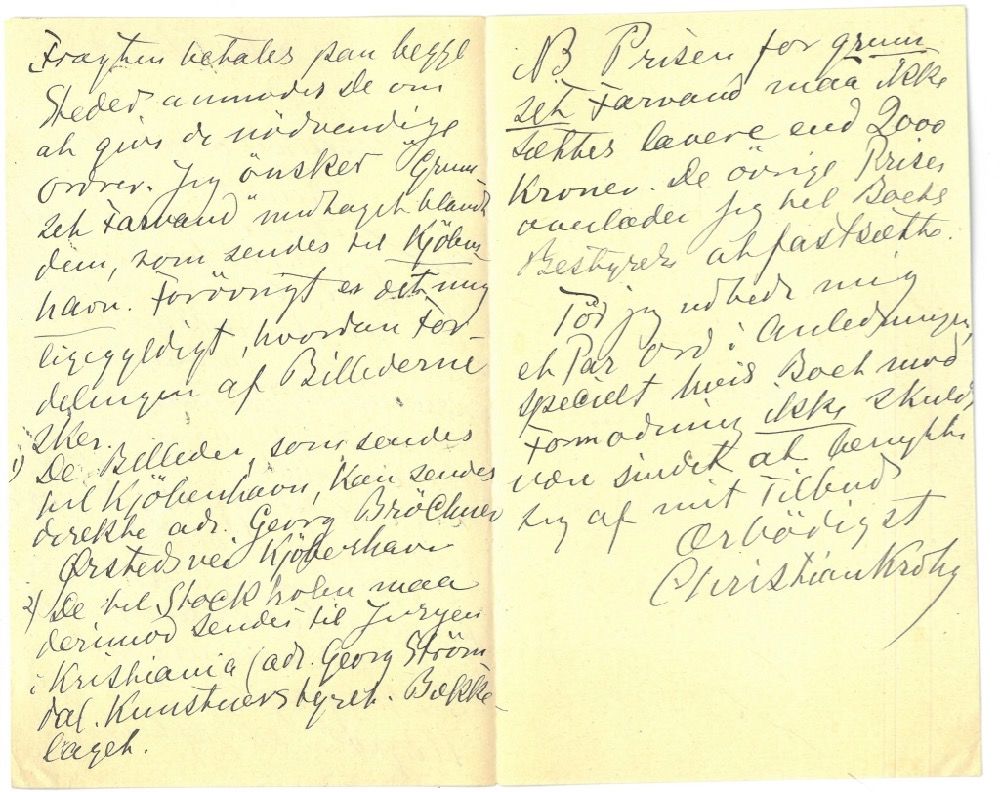 Fragten betales paa begge
Steder anmodes De om
at give de nødvendige
ordrer. Jeg önsker "Grum-
set Farvand" medtaget blandt
dem, som sendes til Kjöben-
havn. Forövrigt er det mig
ligegyldigt, hvordan For
delingen af Billederne
sker.
1) De Billeder, som sendes
til Kjöbenhavn, kan sendes
direkte adr. Georg Bröchner
Ørstedsvei Kjöbenhavn
2) De til Stockholm maa
derimod sendes til Juryen
i Kristiania (adr. Georg Ström
dal. Kunstnerstyret. Bække-
laget.
NB Prisen for grum
set Farvand maa ikke
sættes lavere end 2000
Kroner. De övrige Priser
overlader jeg til Boets
Bestyrer at fastsætte.
Tör jeg udbede mig
et Par Ord i Anledningen,
specielt hvis Boet mod
Formodning ikke skulde
være sindet at benytte
sig af mit Tilbud
Ærbödigst
Christian Krohg